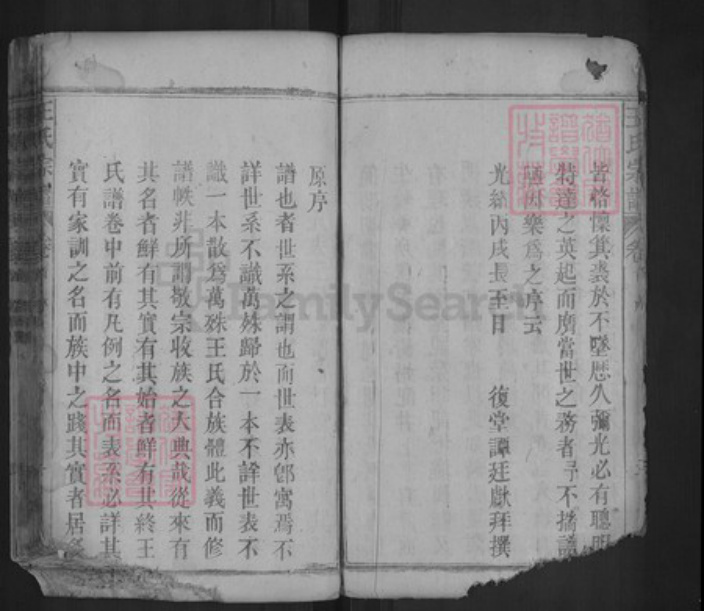 皆恪懍其裘於不墜歷久彌光必有聰明
特達之英起而膺當世之務者予不揣譾
陋因樂爲之序云
光緒丙戌長至日　　復堂譚廷獻拜撰
王氏宗譜　卷
原序
譜也者世系之謂也而世表亦卽寓焉不
詳世系不識萬殊歸於一本不詳世表不
識一本散爲萬殊王氏合族體此義而修
譜帙非所謂敬宗收族之大典哉從來有
其名者鮮有其實有其始者鮮有其終王
氏譜卷中前有凡例之名而表系必詳其
實有家訓之名而族中之踐其實者居
王氏宗譜　卷
FamilySearch